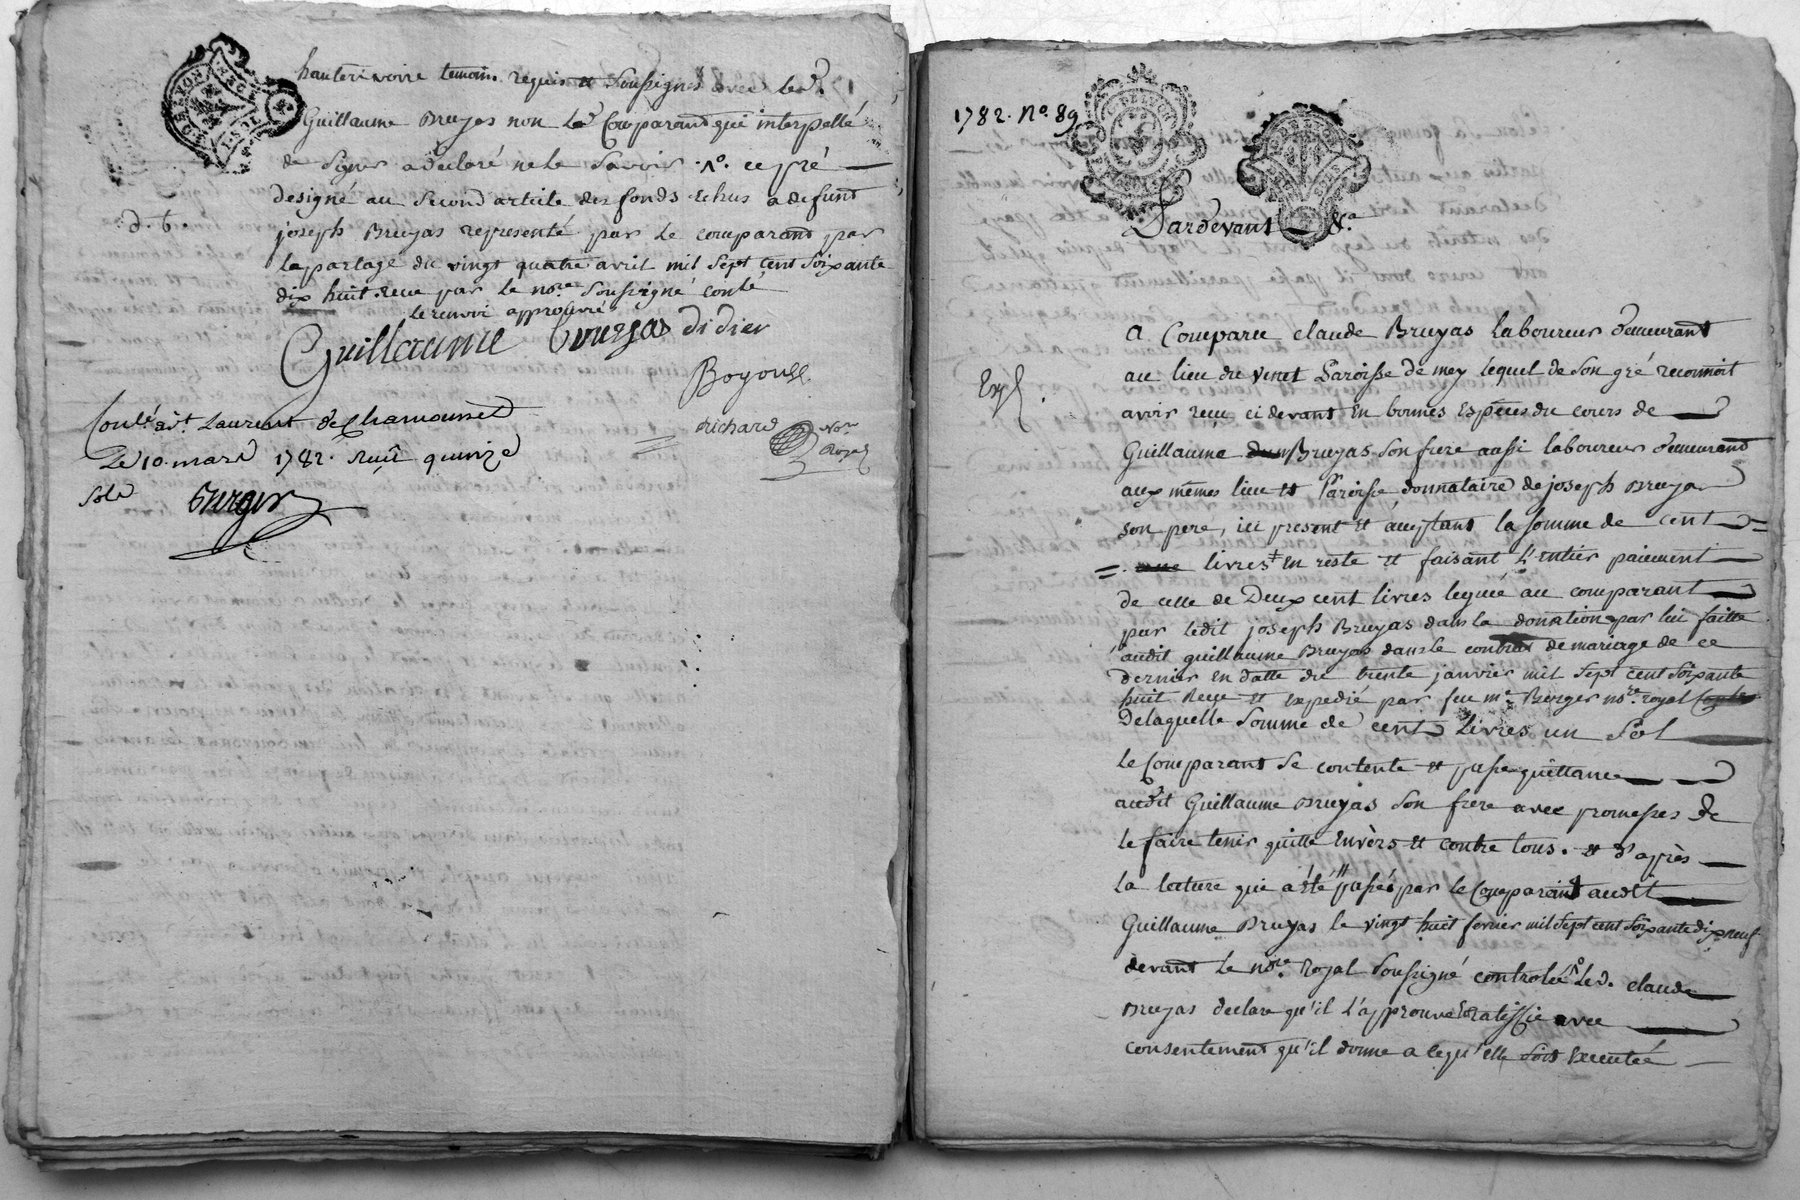 hauterivoire temoins requis et soussignés avec led.
Guillaume Bruyas non led Comparant qui interpellé
de signer a declaré ne le savoir . 1°. ce pré
designé au second article des fonds echus a defunt
d. 6.
joseph Bruyas representé par le comparant par
le partage du vingt quatre avril mil sept cent soixante
dix huit reçu par le nore. soussigné conlé
le renvoi approuvé
Guillaume Bruyas didier
Boyousse
richard nore Royal
Conlé. a St. Laurent de Chamousset
Le 10. mars 1782. Reçû quinze
sols
Berger
1782. No. 89
Pardevant &a.
a Comparu claude Bruyas laboureur demeurant
au lieu du venet Paroisse de mey lequel de son gré reconnoit
Exp.
avoir reçu ci devant en bonnes especes du cours de
Guillaume Bruyas son frere aussi laboureur demeurant
aux mêmes lieu et Paroisse donnataire de joseph Bruyas
son pere, ici present et acceptant la somme de cent =
= livres en reste et faisant l'entier paiement
de celle de Deux cent livres leguée au comparant
par ledit joseph Bruyas dans la donation par lui faitte
audit guillaume Bruyas dans le contrat de mariage de ce
dernier en datte du trente janvier mil sept cent soixante
huit Reçu et expedié par feu me. Berger nore. royal
De laquelle somme de cent Livres un Sol
le Comparant se contente et passe quittance
audit Guillaume Bruyas son frere avec promesses de
le faire tenir quitte envèrs et contre tous. et d'après
la lecture qui a été passée par le Comparant audit
Guillaume Bruyas le vingt huit fevrier mil sept cent soixante dix neuf
devant le nore. royal soussigné controlée led. claude
Bruyas declare qu'il l'approuve & ratiffie avec
consentement qu'il donne a ce qu'elle soit executée